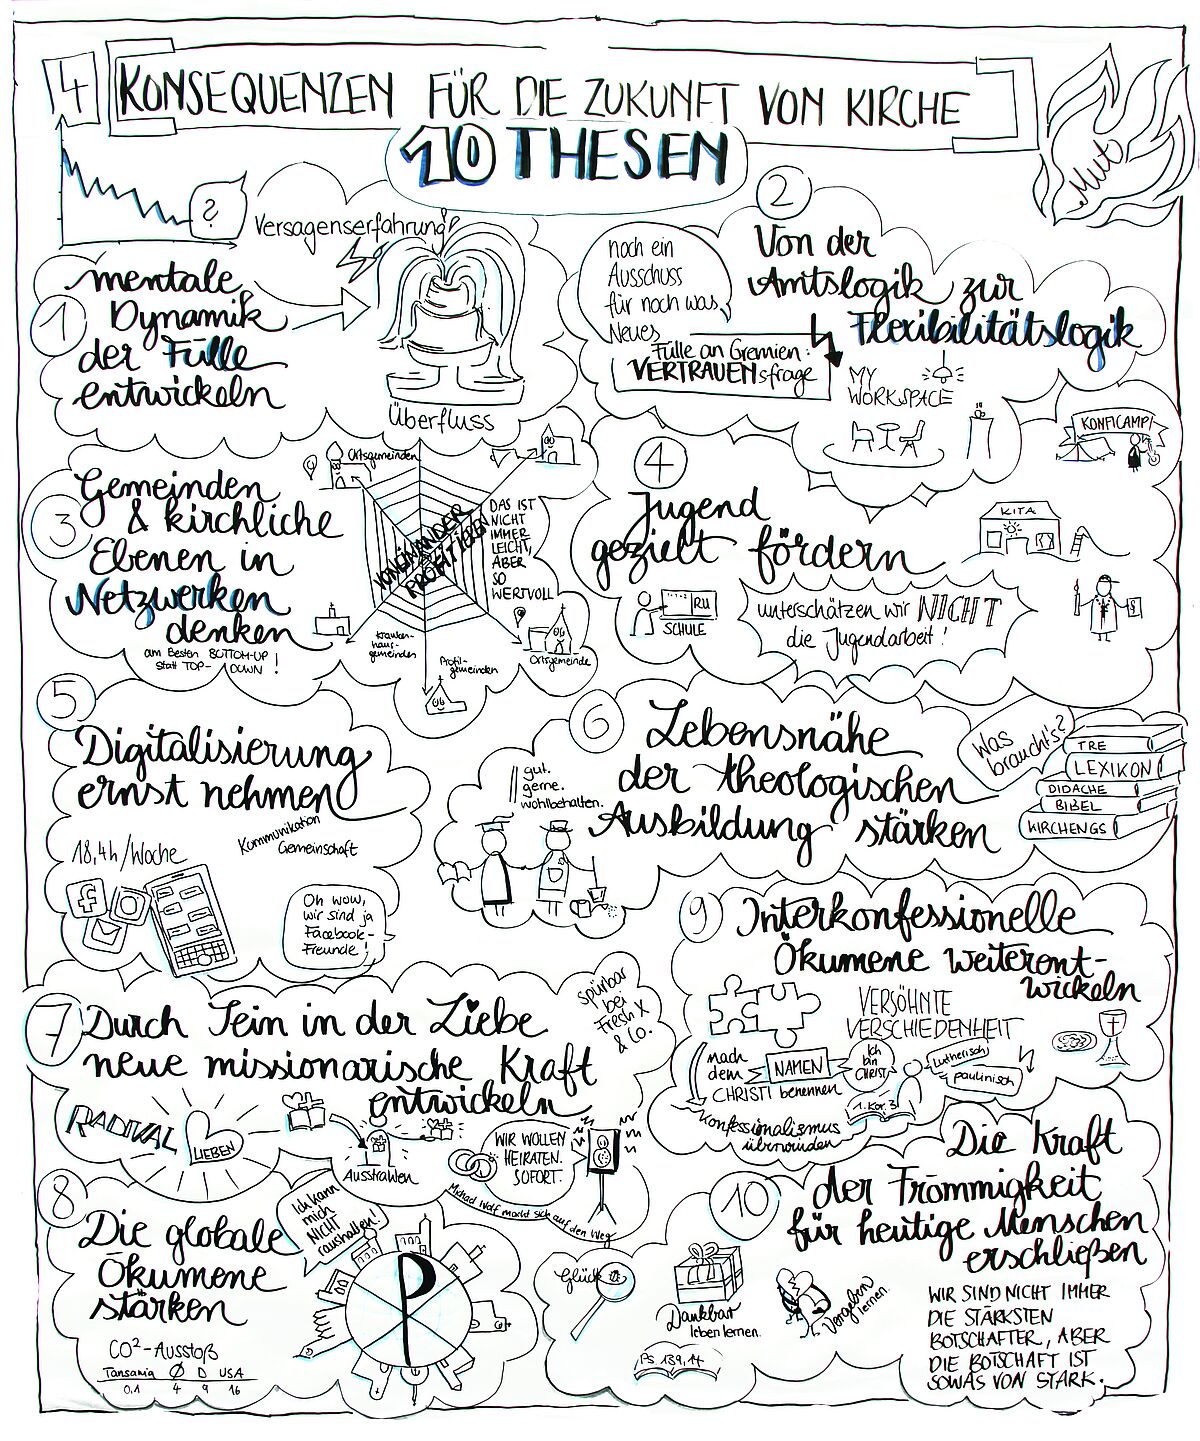 4 KONSEQUENZEN FÜR DIE ZUKUNFT VON KIRCHE
10 THESEN
Mut
?
Versagenserfahrung?
1
mentale
Dynamik
der Fülle
entwickeln
Überfluss
2
Von der
Amtslogik zur
Flexibilitätslogik
noch ein
Ausschuss
für noch was
Neues
Fülle an Gremien:
VERTRAUENsfrage
MY
WORKSPACE
3
Gemeinden
& kirchliche
Ebenen in
Netzwerken
denken
am Besten BOTTOM-UP
statt TOP-DOWN!
Ortsgemeinden
VONEINANDER
PROFITIEREN
DAS IST
NICHT
IMMER
LEICHT,
ABER
SO
WERTVOLL
Kranken-
haus-
gemeinden
Profil-
gemeinden
Ortsgemeinde
4
Jugend
gezielt fördern
KONFICAMP!
KITA
RU
SCHULE
unterschätzen wir NICHT
die Jugendarbeit!
5
Digitalisierung
ernst nehmen
18,4h/Woche
Kommunikation
Gemeinschaft
f
Oh wow,
wir sind ja
Facebook-
Freunde!
6
Lebensnähe
der theologischen
Ausbildung stärken
gut.
gerne.
wohlbehalten.
Was
braucht's?
TRE
LEXIKON
DIDACHE
BIBEL
KIRCHENGS
7
Durch Sein in der Liebe
neue missionarische Kraft
entwickeln
spürbar
bei
Fresh X
& Co.
RADIKAL
LIEBEN
Ausstrahlen
WIR WOLLEN
HEIRATEN.
SOFORT.
Michael Wolf macht sich auf den Weg
8
Die globale
Ökumene
stärken
Ich kann
mich
NICHT
raushalten!
CO²-Ausstoß
Tansania Ø D USA
0,1 4 9 16
9
Interkonfessionelle
Ökumene weiterent-
wickeln
VERSÖHNTE
VERSCHIEDENHEIT
nach
dem NAMEN
CHRISTI benennen
Ich
bin
CHRIST
Lutherisch
paulinisch
1. Kor. 3
Konfessionalismus
überwinden
10
Die Kraft
der Frömmigkeit
für heutige Menschen
erschließen
Glück
Dankbar
leben lernen.
Vergeben
lernen.
Ps 139,14
WIR SIND NICHT IMMER
DIE STÄRKSTEN
BOTSCHAFTER, ABER
DIE BOTSCHAFT IST
SOWAS VON STARK.